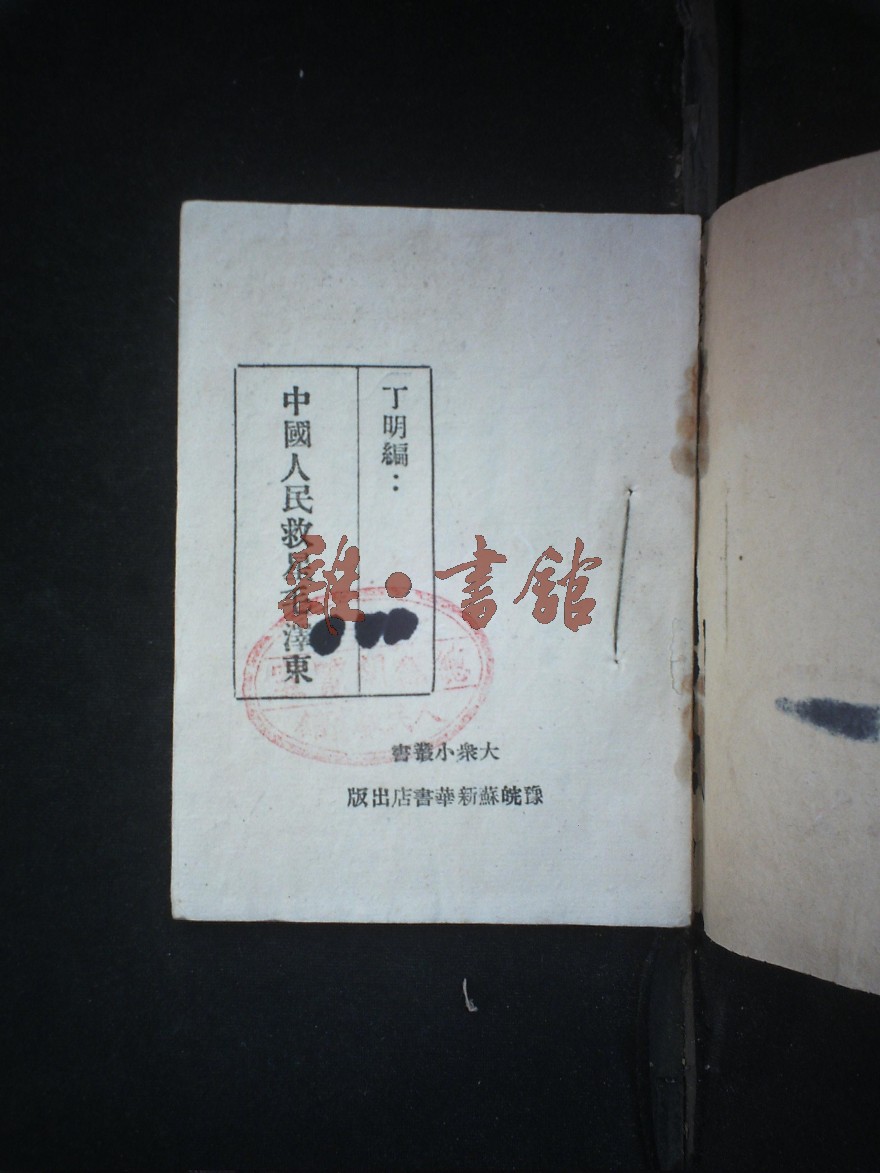 丁明編：
中國人民救星毛澤東
大衆小叢書
豫皖蘇新華書店出版
雜·書館